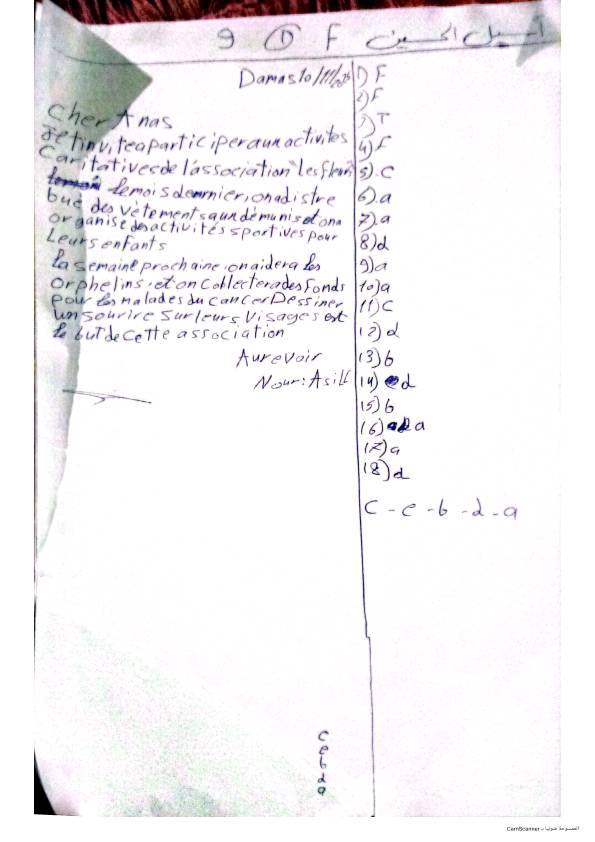 أسيل الحسين F ① 9
Damas 10/11/
Cher Anas
Je t'invite a participer a un activites
Caritatives de l'association "les fleurs
le mois dernnier, on a distre
bué des vêtements a un démunis et on a
organise des activités sportives pour
Leurs enfants
la semaine prochaine, on aidera les
orphelins, et on collectera des fonds
pour les malades du cancer Dessiner
un sourire sur leurs visages est
le but de cette association
Au revoir
Nour: Asill
1) F
2) F
3) T
4) F
5) C
6) a
7) a
8) d
9) a
10) a
11) C
12) d
13) b
14) d
15) b
16) a
17) a
18) d
C - e - b - d - a
C
e
b
d
a
الممسوحة ضوئيا بـ CamScanner